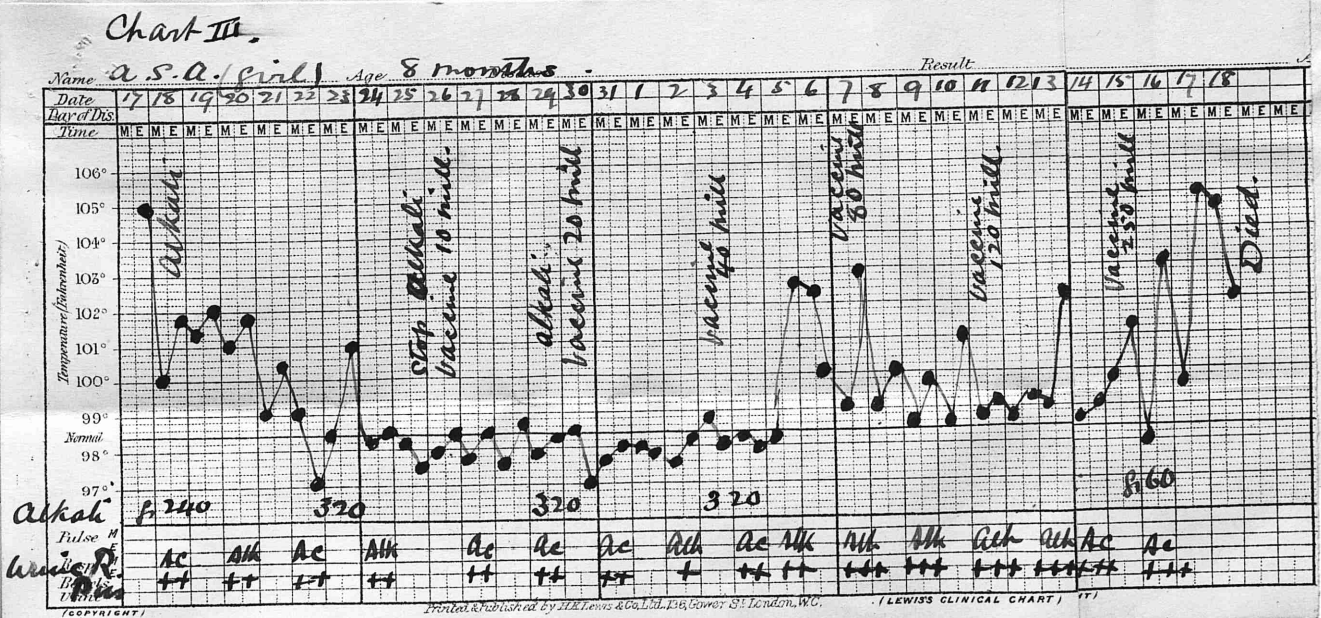 Chart III.
Name A.S.A. (girl) Age 8 months. Result
Date 17 18 19 20 21 22 23 24 25 26 27 28 29 30 31 1 2 3 4 5 6 7 8 9 10 11 12 13 14 15 16 17 18
Day of Dis.
Time M E M E M E M E M E M E M E M E M E M E M E M E M E M E M E M E M E M E M E M E M E M E M E M E M E M E M E M E M E M E M E M E M E M E M E
Temperature (Fahrenheit)
106°
105°
104°
103°
102°
101°
100°
99°
Normal
98°
97°
Alkali
Stop Alkali
Vaccine 10 mill.
Alkali.
Vaccine 20 mill
Vaccine 40 mill
Vaccine 80 mill
Vaccine 120 mill.
Vaccine 250 mill
Died.
Alkali gr 240 320 320 320 gr 60
Pulse M E
Urine R. Ac Alk Ac Alk Ac Ac Ac Alk Ac Alk Alk Alk Alk Alk Ac Ac
Pus ++ ++ ++ ++ ++ ++ ++ + ++ ++ +++ +++ +++ ++++ +++ +++
(COPYRIGHT) Printed & Published by H.K. Lewis & Co. Ltd., 136, Gower St. London, W.C. (LEWIS'S CLINICAL CHART)